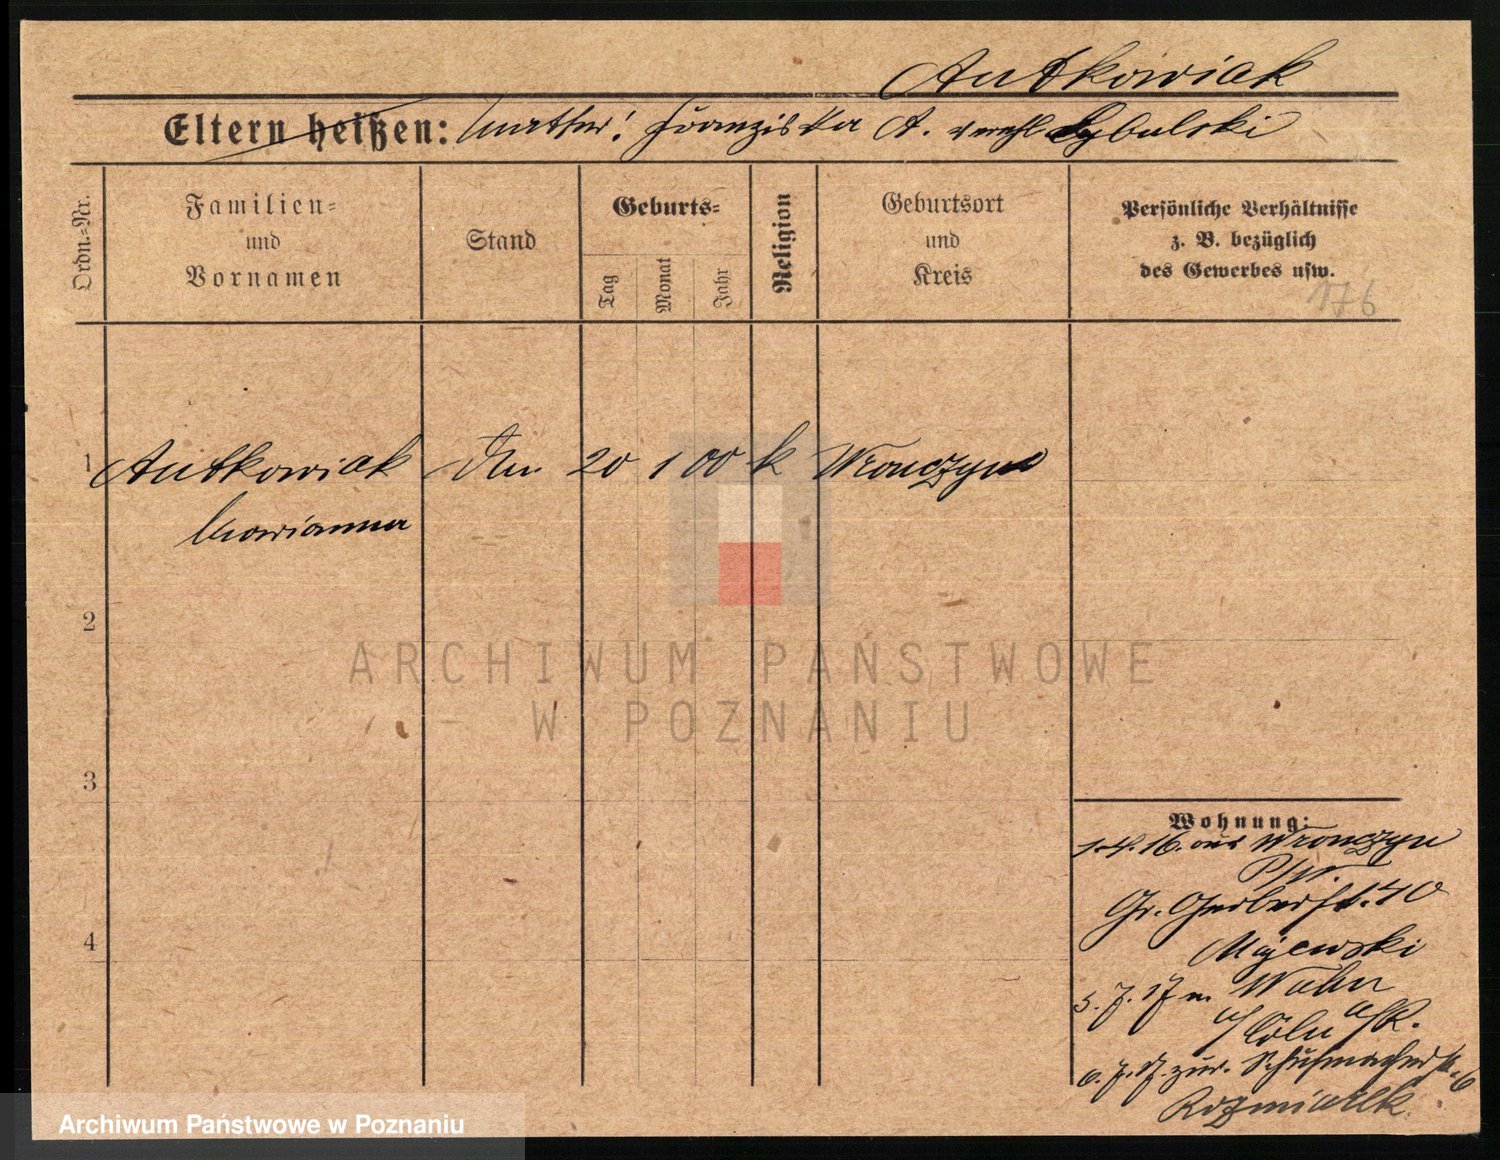 Antkowiak
Eltern heißen: Mutter: Franziska A. verehl Cybulski
Ordn.=Nr.
Familien=
und
Vornamen
Stand
Geburts=
Tag
Monat
Jahr
Religion
Geburtsort
und
Kreis
Persönliche Verhältnisse
z. B. bezüglich
des Gewerbes usw.
176
1 Antkowiak 20 1 00 k Wronczyn
Marianna
2
3
4
Wohnung:
1.4.16. aus Wronczyn
Gr. Gerberst. 40
Majewski
5. 7. 17 n. Wahn
a/ Cöln a/R.
6. 7. 17. zur. Schuhmacherst. 6
Kozmiarek
ARCHIWUM PAŃSTWOWE
W POZNANIU
Archiwum Państwowe w Poznaniu